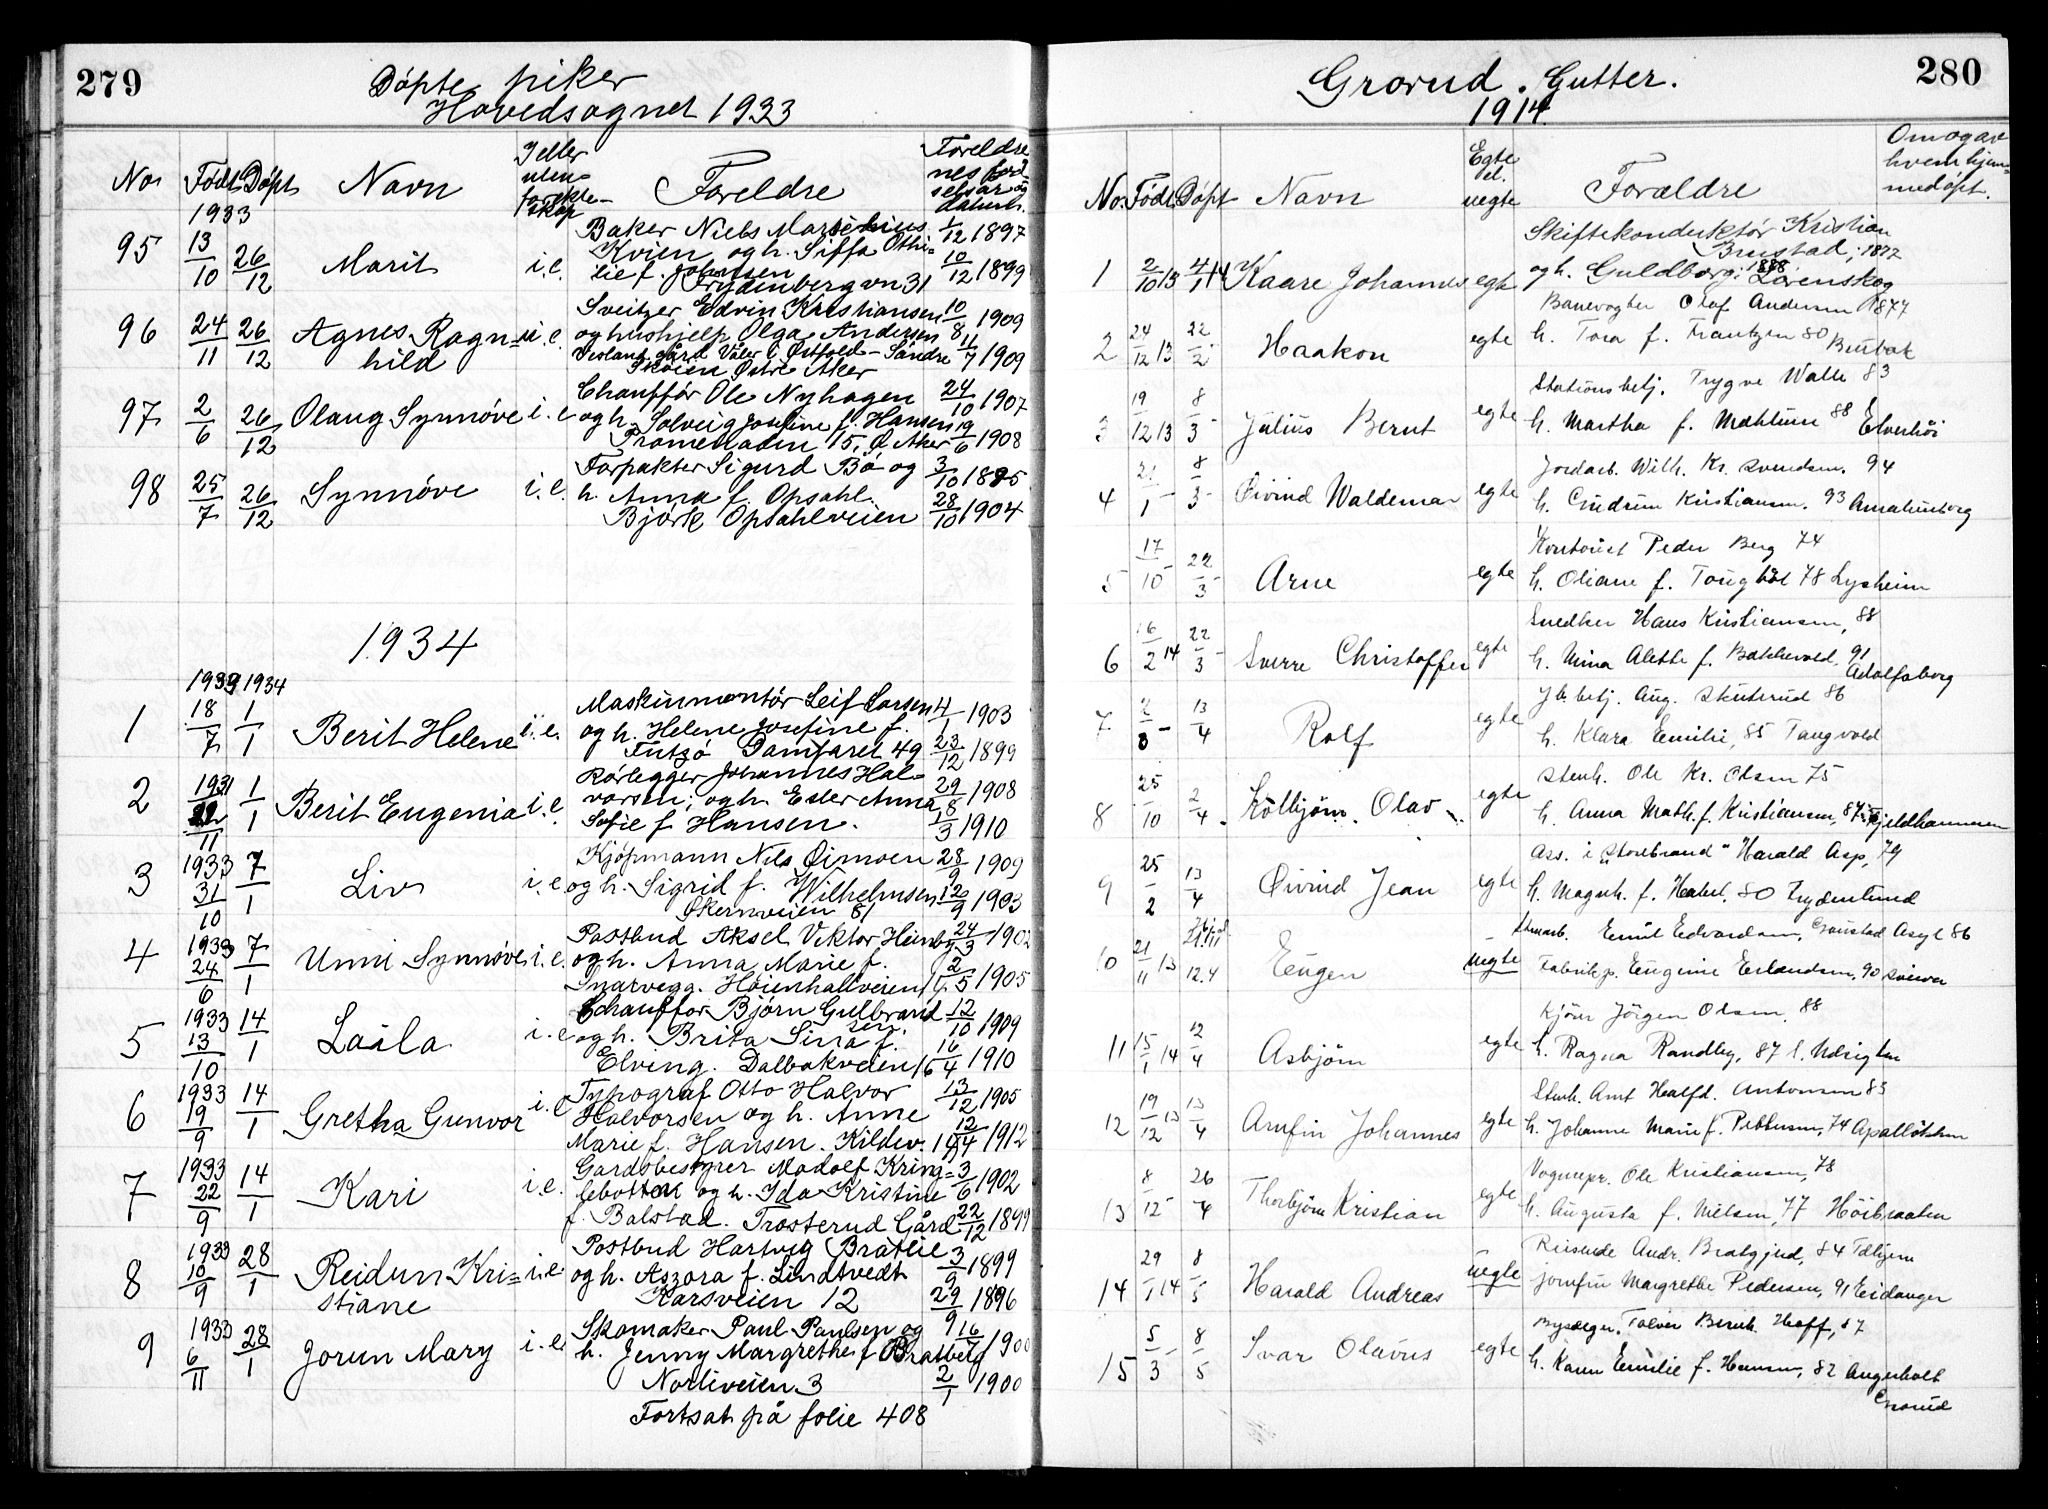 279
Döpte piker
Hovedsognet 1933
No Född Döpt Navn I eller uten- forekte- skap Foreldre Foreldre nes föd- selsår og datum.
1933
95 13/10 26/12 Marit i.e. Baker Niels Marselius 1/12 1897
Kvien og h. Siffa Othi-
lie f. Johnsen 10/12 1899
Frydenbergvn 31
96 24/11 26/12 Agnes Ragn= hild u.e. Sveitzer Edvin Kristiansen 10/8 1909
og hushjelp Olga Andersen
gård Våler i Østfold - Söndre 11/7 1909
Skøien Östre Aker
97 2/6 26/12 Olaug Synnöve i.e. Chaufför Ole Nyhagen 24/10 1907
og h. Solveig Josefine f. Hansen
Promenaden 15, Ö. Aker 19/6 1908
98 25/7 26/12 Synnöve i.e. Forpakter Sigurd Bö og 3/10 1895
h. Anna f. Opsahl.
Björk Opsahlveien 28/10 1904
1934
1933 1934
1 18/7 1/1 Berit Helene i.e. Maskinmontör Leif Larsen 4/1 1903
og h. Helene Josefine f.
Futzö Damfaret 49 23/12 1899
2 1931 22/11 1/1 Berit Eugenia i.e. Rörlegger Johannes Hal-
vorsen; og h. Ester Anna 29/8 1908
Sofie f Hansen. 18/3 1910
3 1933 31/10 7/1 Liv i.e. Kjöpmann Nils Öimoen 28/9 1909
og h. Sigrid f. Wilhelmsen 12/9 1903
Økernveien 81
4 1933 24/6 7/1 Unni Synnöve i.e. Postbud Aksel Viktor Heinby 24/3 1902
og h. Anna Marie f.
Snarvegg. Höienhallveien 14. 2/5 1905
5 1933 13/10 14/1 Laila i.e. Chauffor Björn Gulbrand sen 12/10 1909
og h. Brita Sina f.
Elving. Dalbakveien 16 16/4 1910
6 1933 19/9 14/1 Gretha Gunvor i.e Typograf Otto Halvor 13/12 1905
Halvorsen og h. Anne
Marie f. Hansen. Kildev. 12/4 1912
7 1933 22/9 14/1 Kari i.e. Gardsbestyrer Madolf Kring= 3/6 1902
lebotten og h. Ida Kristine
f. Balstad. Trosterud Gård 22/12 1899
8 1933 10/9 28/1 Reidun Kri= stiane i.e. Postbud Hartvig Bratlie 3/9 1899
og h. Aszora f. Lindtvedt
Karsveien 12 29/9 1896
9 1933 6/11 28/1 Jorun Mary i.e. Skomaker Paul Paulsen og 16/7 1900
h. Jenny Margrethe f Bratberg
Norliveien 3 2/1 1900
Fortsat på folie 408
280
Grorud. Gutter.
1914.
No. Född Döpt Navn Egte el. uegte Foræeldre Om og av hvem hjem= medöpt.
1 2/10 13 4/1 14 Kaare Johannes egte Skiftekonduktör Kristian
Brustad; 1877
og h. Guldborg; 1888 Lörenskog
2 24/12 13 22/2 Haakon egte Banevogter Olaf Andersen 1877
h. Tora f. Frantzen 80 Benbak
3 19/12 13 8/3 Julius Bernt egte Stationsbetj. Trygve Walle 83
h. Martha f. Mæhlum 88 Elverhöi
4 21/1 8/3 Öivind Waldemar egte Jordarb. Wilh. Kr. Svendsen. 94
h. Gudrun Kristiansen. 93 Amalienborg
5 17/10 22/3 Arne egte Kontorist Peder Berg 74
h. Oliane f. 78 Lysheim
6 16/2 14 22/3 Sverre Christoffer egte Snedker Hans Kristiansen, 88
h. Mina Alette f. Bakkevold. 91
Adolfsberg
7 2/3 13/4 Rolf egte Jb. betj. Aug. Stuterud 86
h. Klara Emilie, 85 Tangvold
8 25/10 2/4 Kolbjörn Olav egte Stenh. Ole Kr. Olsen 75
h. Anna Math. f. Kristiansen, 87 Fjeldhammeren
9 25/2 13/4 Öivind Jean egte Ass. i "Storebrand" Harald Asp, 79
h. Magnh. f. Habel, 80 Frydenlund
10 21/11 13 12.4 Eugen uegte Stenarb. Emil Edvardsen, Gaustad Asyl 86
Fabrikp. Eugenie Erlandsen, 90
11 15/1 14 12/4 Asbjörn egte Kjörer Jörgen Olsen, 88
h. Ragna Randby, 87 l. Udsigten
12 19/12 13 13/4 Arnfin Johannes egte Stenh. Arnt Halfd. Antonsen 83
h. Johanne Marie f. Pettersen, 74 Apallökken
13 8/12 26/4 Thorbjörn Kristian egte Vognrep. Ole Kristiansen, 78
h. Augusta f. Nielsen, 77 Höibraaten
14 29/1 14 8/5 Harald Andreas uegte Reisende Andr. Bratgjerd, 84 Tdhjem
jomfru Margrethe Pedersen, 91 Eidanger
15 5/3 8/5 Ivar Olavus egte Bernh. Hoff, 87
h. Karen Emilie f. Hansen, 82 Angerholt
Grorud